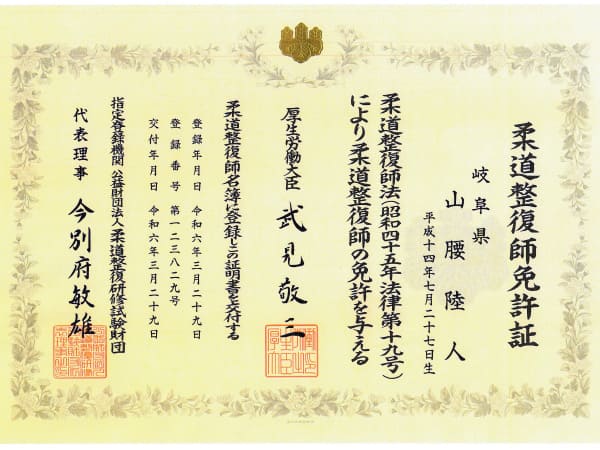 柔道整復師免許証
岐阜県
山腰陸人
平成十四年七月二十七日生
柔道整復師法(昭和四十五年法律第十九号)
により柔道整復師の免許を与える
厚生労働大臣 武見敬三
柔道整復師名簿に登録しこの証明書を交付する
登録年月日 令和六年三月二十九日
登録番号 第一二三八二九号
交付年月日 令和六年三月二十九日
指定登録機関 公益財団法人 柔道整復研修試験財団
代表理事 今別府敏雄